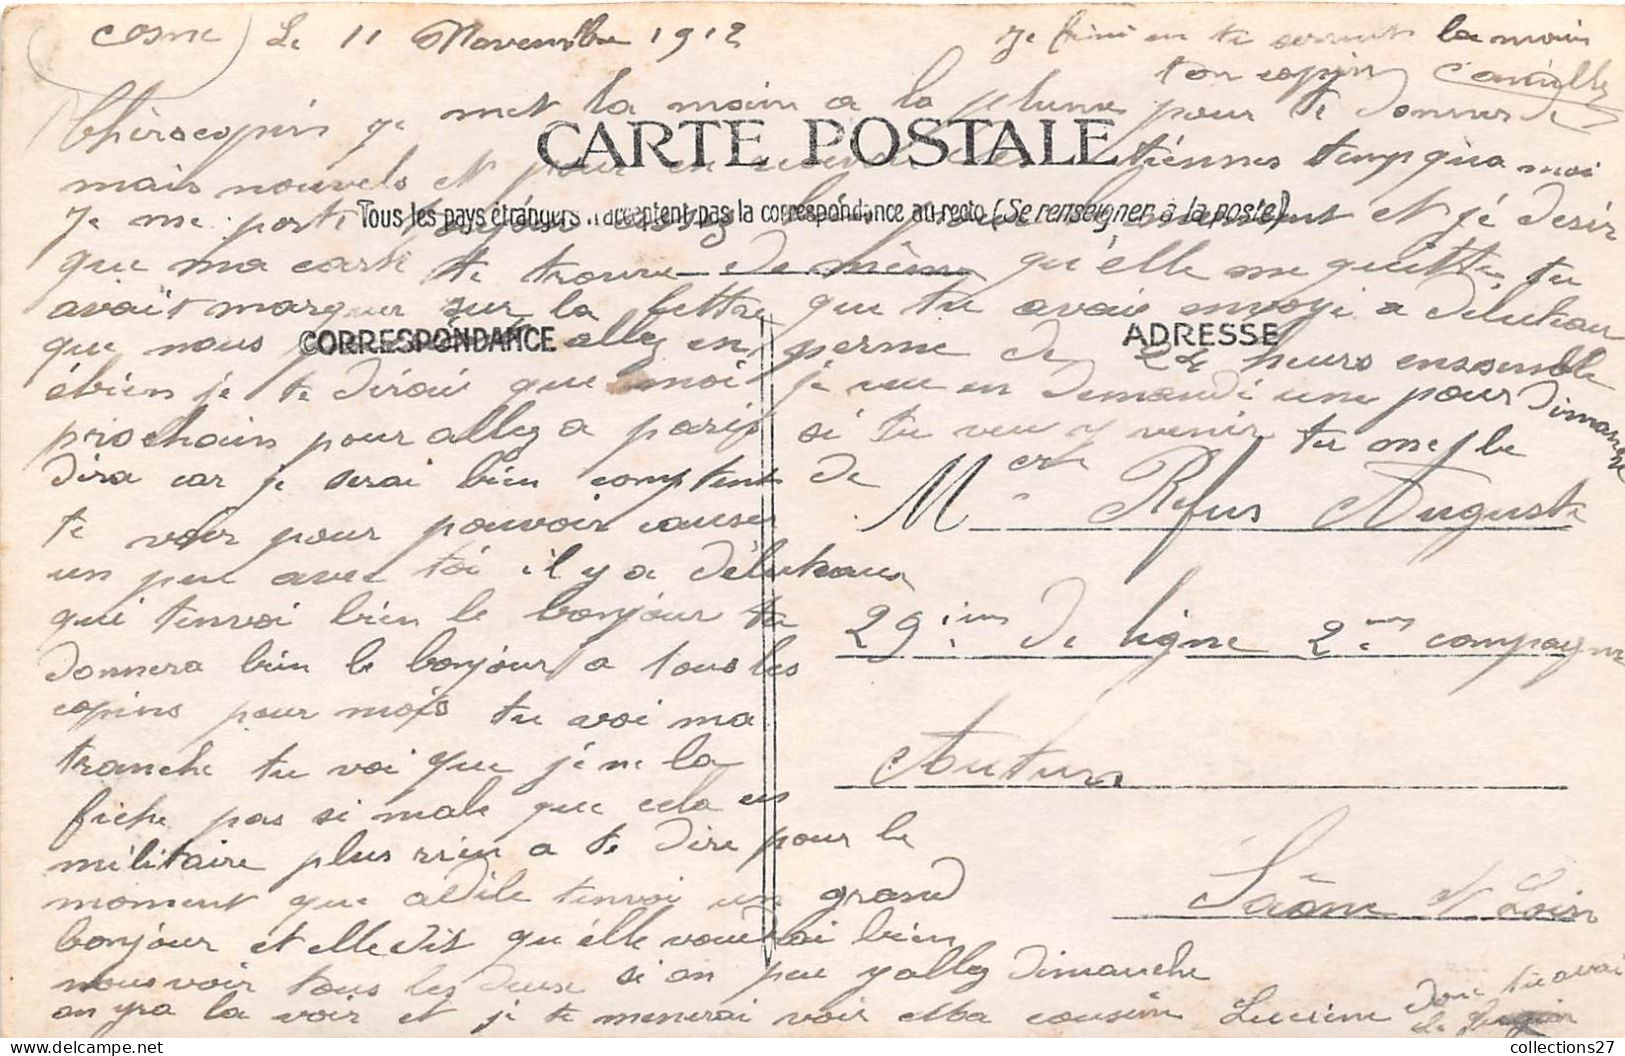 Cosne Le 11 Novembre 1912
Je fini en te serrent la main
ton copin Camille
Chèrocopin je met la main a la plume pour te donner de
CARTE POSTALE
mais nouvels et pour en tiennes temp qu'a moi
Tous les pays étrangers n'acceptent pas la correspondance au recto (Se renseigner à la poste)
Je me porte toujour et jé desir
que ma carte te trouve de même qu'élle me quitte, tu
avait marquer sur la lettre que tu avais envoyi a Deluteau
que nous allez en perme de 24 heurs ensemble
CORRESPONDANCE
ADRESSE
ébien je te dirai que moi je veu en demandé une pour Dimanche
prochain pour allez a paris si tu veu y venir tu me le
dira car je serai bien comptent de
te voir pour pouvoir causer
un peu avec toi il y a Déluteau
qui tenvoi bien le bonjour tu
donnera bien le bonjour a tous les
copins pour mois tu voi ma
tranche tu voi que jé ne la
fiche pas si male que cela en
militaire plus rien a te dire pour le
moment que adile tenvoi un grand
bonjour et elle dit qu'élle voudrai bien
nous voir tous les deux si on peu y allez dimanche
on yra la voir et je te menerai voir ma cousine Lucienne
Donc tu avai
Refus Auguste
29 ième de ligne 2 ème compagne
Autun
Saône et Loir
collections27